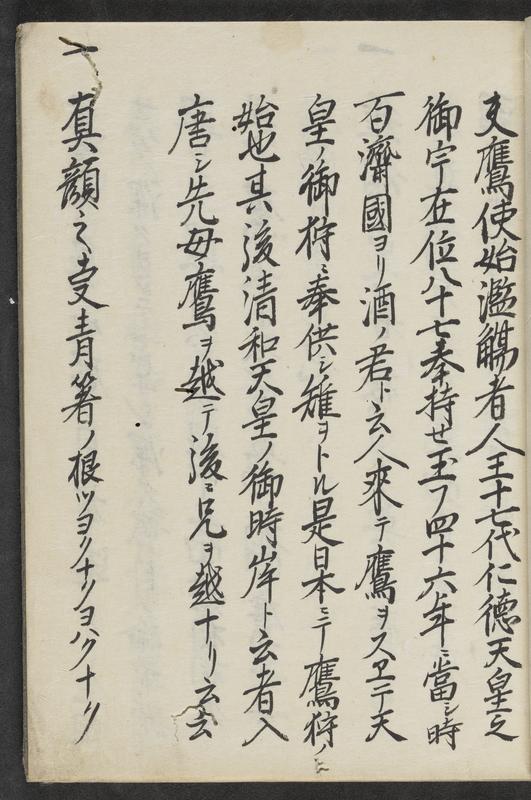 夫鷹使始濫觴者人王十七代仁徳天皇之
御宇在位八十七奉持せ玉フ四十六年ニ當シ時
百濟國ヨリ酒ノ君ト云人來テ鷹ヲスヱテ天
皇ノ御狩ニ奉供シ雉ヲトル是日本ニテ鷹狩ノ
始也其後清和天皇ノ御時岸ト云者入
唐シ先母鷹ヲ越テ後ニ兄ヲ越ナリ云去
一 真顔之支青箸ノ根ツヨクナリヨハクナリ